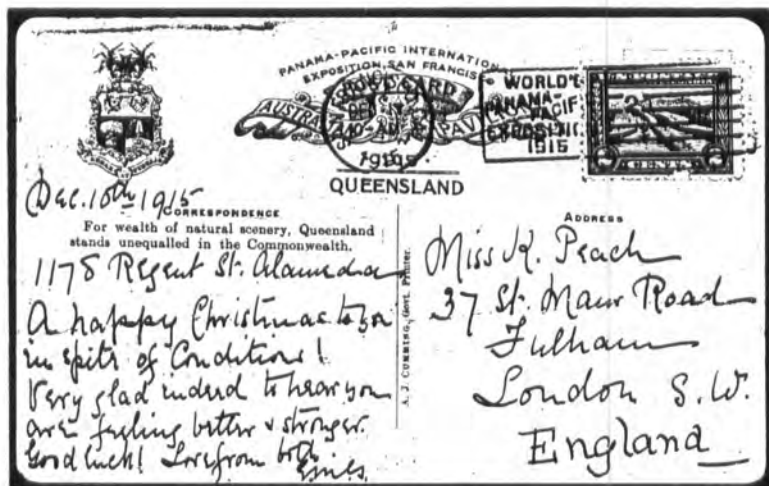 PANAMA-PACIFIC INTERNATION
EXPOSITION, SAN FRANCIS
POST CARD
AUSTRA PAV
10-AM
1915
WORLD'S
PANAMA-
PACIFI
EXPOSITI
1915
2 CENTS 2
QUEENSLAND
Dec. 10th 1915
CORRESPONDENCE
For wealth of natural scenery, Queensland
stands unequalled in the Commonwealth.
1178 Regent St. Alameda
A happy Christmas to you
in spite of Conditions!
Very glad indeed to hear you
are feeling better & stronger.
Good luck! Love from both
A. J. CUMMING, Govt. Printer.
ADDRESS
Miss K. Peach
37 St. Maur Road
Fulham
London S.W.
England